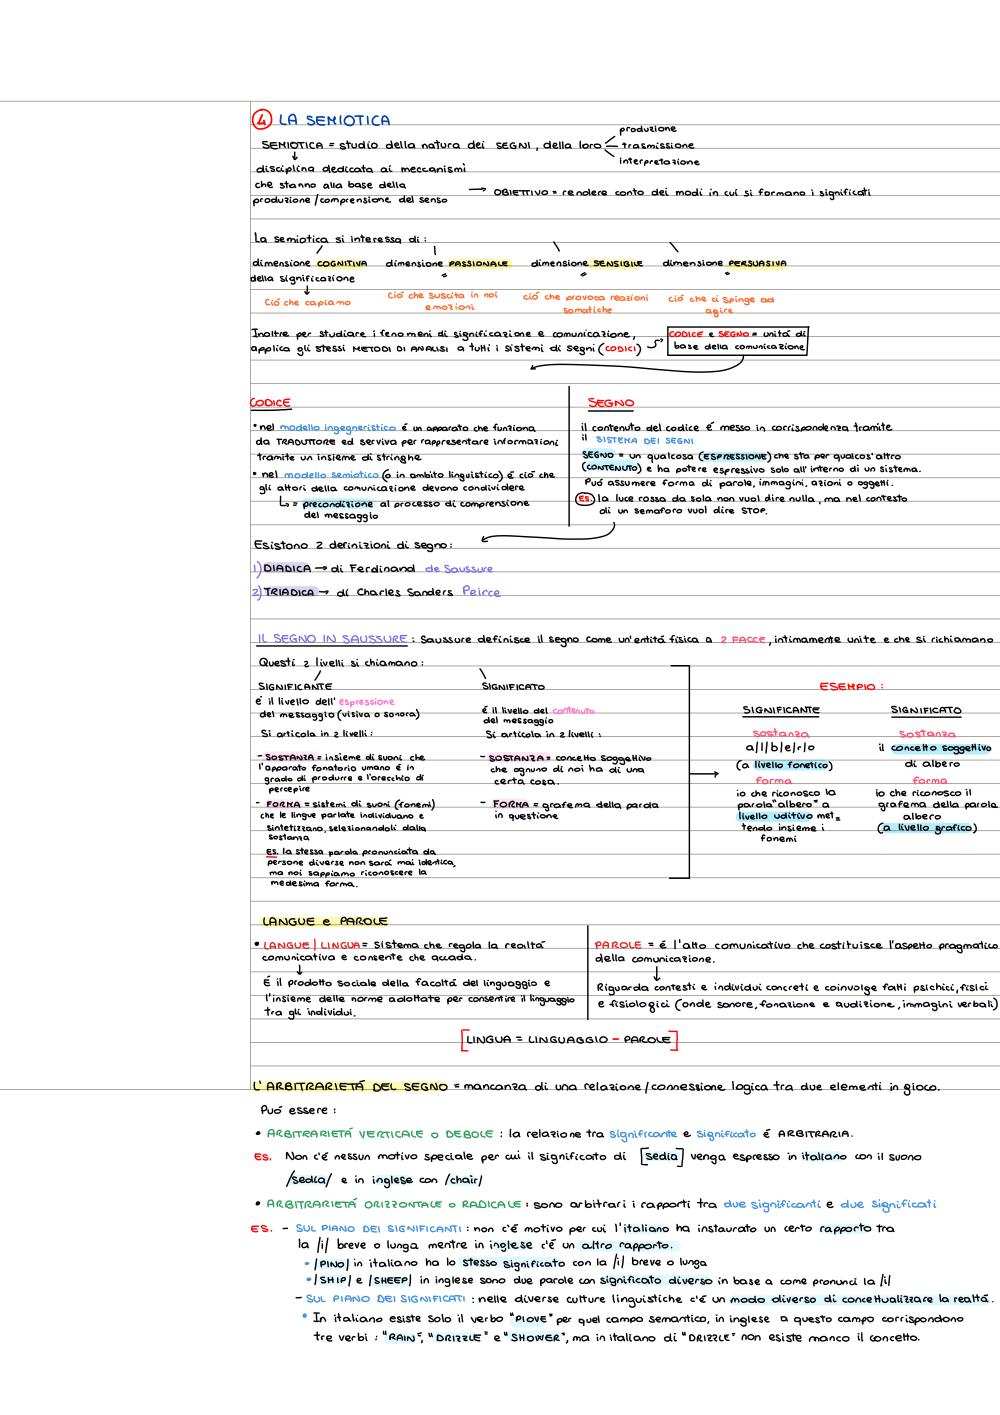 4 LA SEMIOTICA
SEMIOTICA = studio della natura dei SEGNI, della loro
produzione
trasmissione
interpretazione
disciplina dedicata ai meccanismi
che stanno alla base della
produzione/comprensione del senso
→ OBIETTIVO = rendere conto dei modi in cui si formano i significati
La semiotica si interessa di:
dimensione COGNITIVA
della significazione
Ció che capiamo
dimensione PASSIONALE
ció che suscita in noi
emozioni
dimensione SENSIBILE
ció che provoca reazioni
somatiche
dimensione PERSUASIVA
ció che ci spinge ad
agire
Inoltre per studiare i fenomeni di significazione e comunicazione,
applica gli stessi METODI DI ANALISI a tutti i sistemi di segni (CODICI)
CODICE e SEGNO = unitá di
base della comunicazione
CODICE
• nel modello ingegneristico é un apparato che funziona
da TRADUTTORE ed serviva per rappresentare informazioni
tramite un insieme di stringhe
• nel modello semiotico (o in ambito linguistico) é ció che
gli attori della comunicazione devono condividere
= precondizione al processo di comprensione
del messaggio
SEGNO
il contenuto del codice é messo in corrispondenza tramite
il SISTEMA DEI SEGNI
SEGNO = un qualcosa (ESPRESSIONE) che sta per qualcos'altro
(CONTENUTO) e ha potere espressivo solo all'interno di un sistema.
Puó assumere forma di parole, immagini, azioni o oggetti.
ES. la luce rossa da sola non vuol dire nulla, ma nel contesto
di un semaforo vuol dire STOP.
Esistono 2 definizioni di segno:
1) DIADICA → di Ferdinand de Saussure
2) TRIADICA → di Charles Sanders Peirce
IL SEGNO IN SAUSSURE: Saussure definisce il segno come un'entitá fisica a 2 FACCE, intimamente unite e che si richiamano
Questi 2 livelli si chiamano:
SIGNIFICANTE
é il livello dell'espressione
del messaggio (visiva o sonora)
Si articola in 2 livelli:
- SOSTANZA = insieme di suoni che
l'apparato fonatorio umano é in
grado di produrre e l'orecchio di
percepire
- FORMA = sistemi di suoni (fonemi)
che le lingue parlate individuano e
sintetizzano, selezionandoli dalla
sostanza
ES. la stessa parola pronunciata da
persone diverse non sará mai identica,
ma noi sappiamo riconoscere la
medesima forma.
SIGNIFICATO
é il livello del contenuto
del messaggio
Si articola in 2 livelli:
- SOSTANZA = concetto soggettivo
che ognuno di noi ha di una
certa cosa.
- FORMA = grafema della parola
in questione
ESEMPIO:
SIGNIFICANTE
sostanza
a/l/b/e/r/o
(a livello fonetico)
forma
io che riconosco la
parola "albero" a
livello uditivo met=
tendo insieme i
fonemi
SIGNIFICATO
sostanza
il concetto soggettivo
di albero
forma
io che riconosco il
grafema della parola
albero
(a livello grafico)
LANGUE e PAROLE
• LANGUE | LINGUA = Sistema che regola la realtá
comunicativa e consente che accada.
É il prodotto sociale della facoltá del linguaggio e
l'insieme delle norme adottate per consentire il linguaggio
tra gli individui.
PAROLE = é l'atto comunicativo che costituisce l'aspetto pragmatico
della comunicazione.
Riguarda contesti e individui concreti e coinvolge fatti psichici, fisici
e fisiologici (onde sonore, fonazione e audizione, immagini verbali)
[LINGUA = LINGUAGGIO - PAROLE]
L'ARBITRARIETÁ DEL SEGNO = mancanza di una relazione/connessione logica tra due elementi in gioco.
Puó essere:
• ARBITRARIETÁ VERTICALE o DEBOLE: la relazione tra significante e significato é ARBITRARIA.
ES. Non c'é nessun motivo speciale per cui il significato di [sedia] venga espresso in italiano con il suono
/sedia/ e in inglese con /chair/
• ARBITRARIETÁ ORIZZONTALE o RADICALE: sono arbitrari i rapporti tra due significanti e due significati
ES. - SUL PIANO DEI SIGNIFICANTI: non c'é motivo per cui l'italiano ha instaurato un certo rapporto tra
la /i/ breve o lunga mentre in inglese c'é un altro rapporto.
• /PINO/ in italiano ha lo stesso significato con la /i/ breve o lunga
• /SHIP/ e /SHEEP/ in inglese sono due parole con significato diverso in base a come pronunci la /i/
- SUL PIANO DEI SIGNIFICATI: nelle diverse culture linguistiche c'é un modo diverso di concettualizzare la realtá.
• In italiano esiste solo il verbo "PIOVE" per quel campo semantico, in inglese a questo campo corrispondono
tre verbi: "RAIN", "DRIZZLE" e "SHOWER", ma in italiano di "DRIZZLE" non esiste manco il concetto.